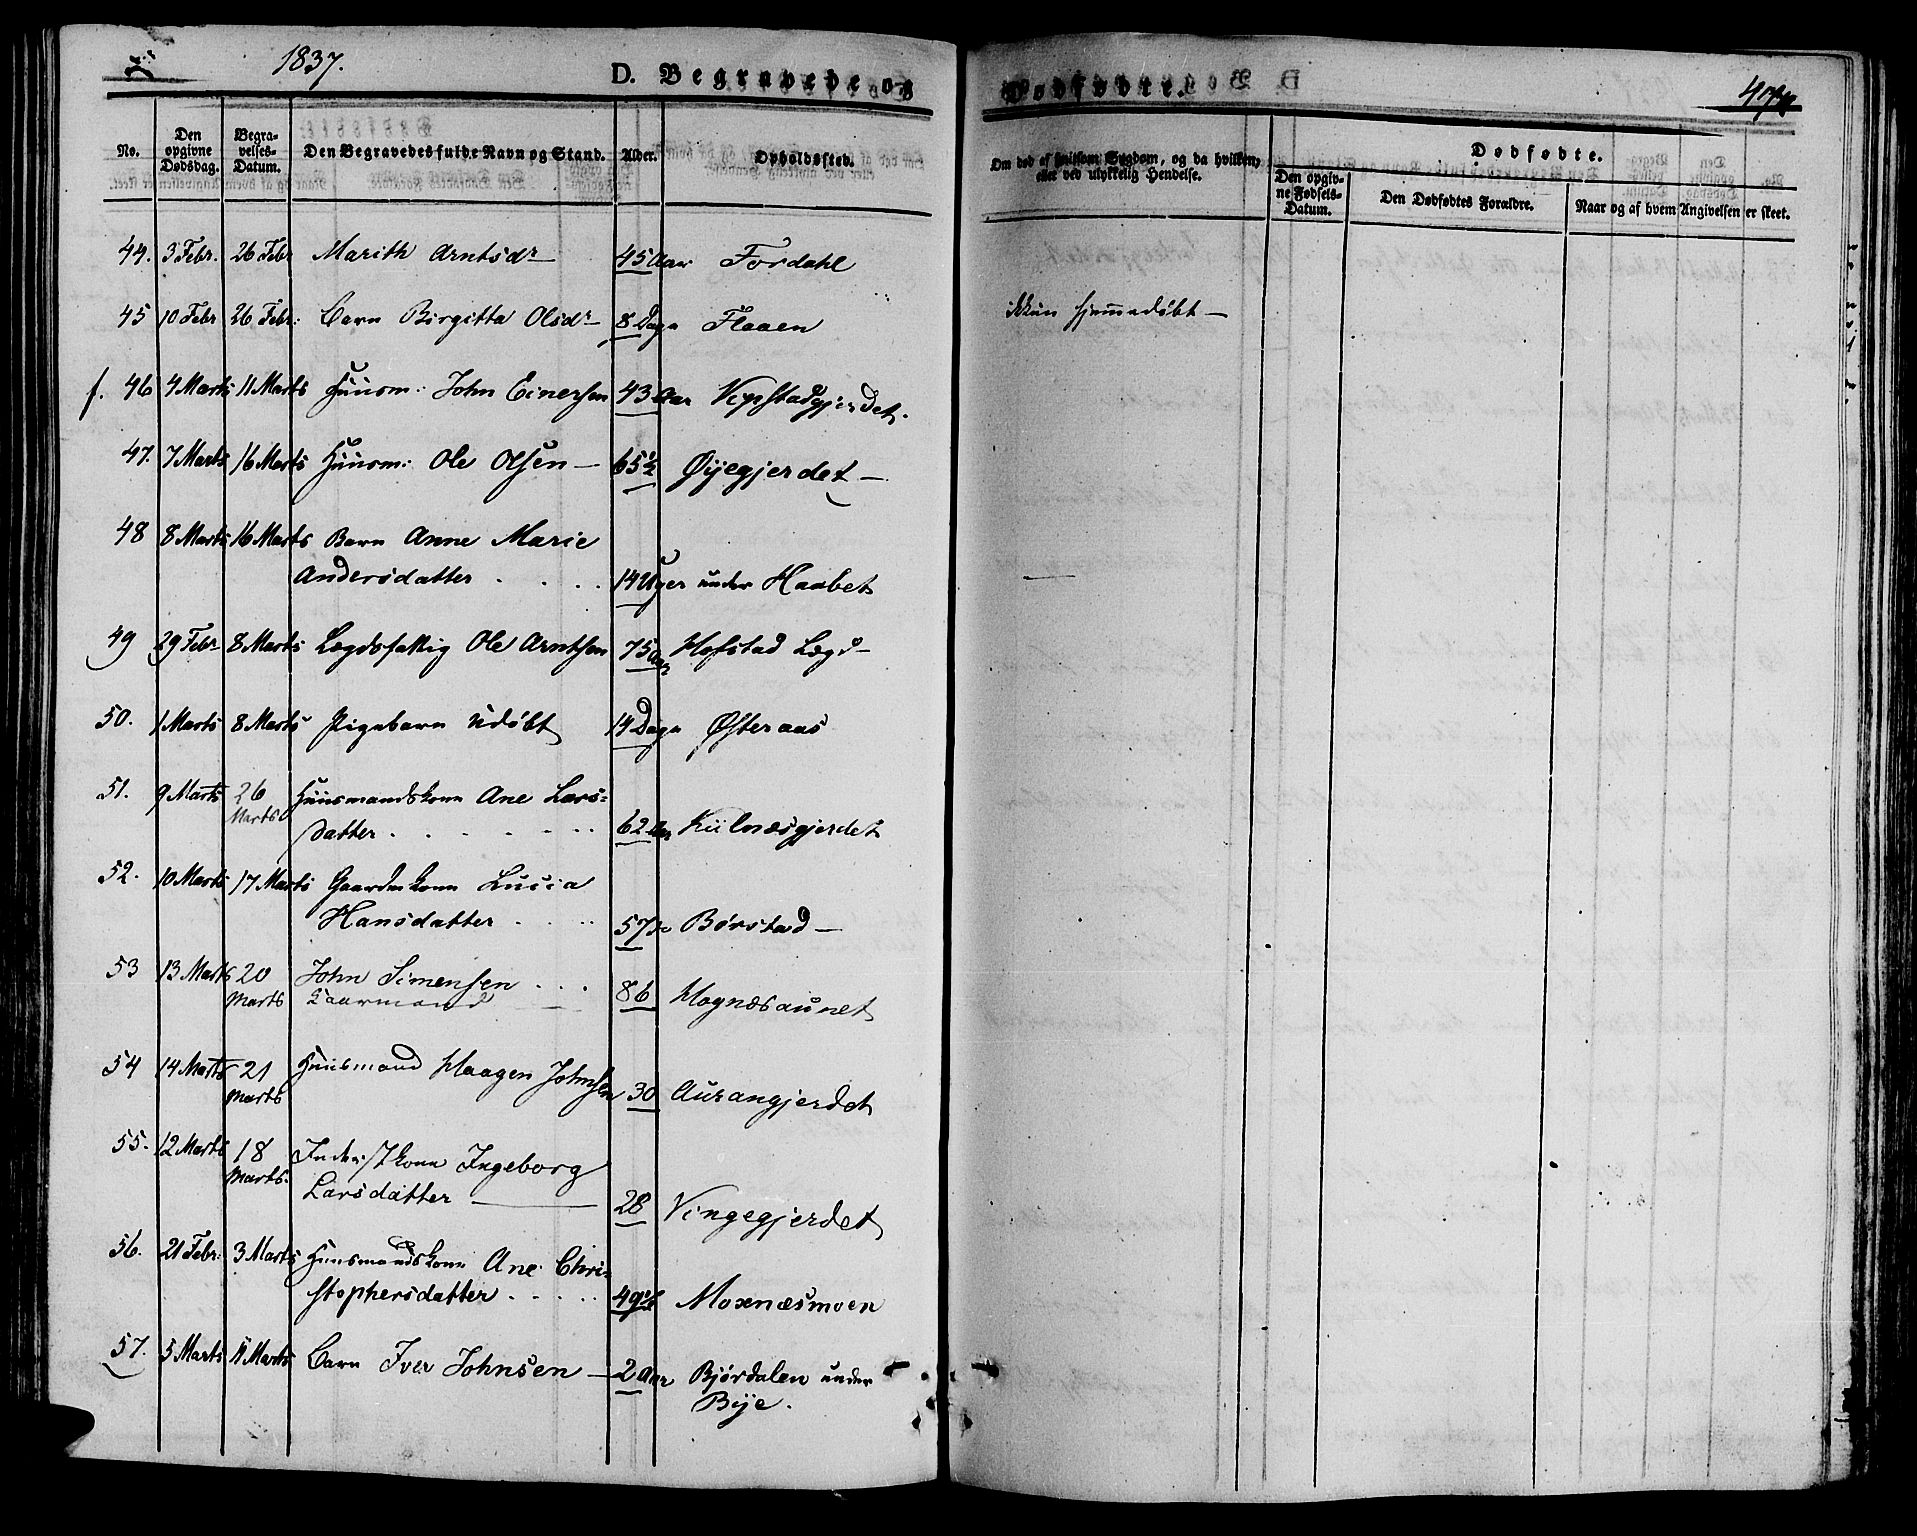 1837.
D. Begravede og Dødfødte.
No. Den opgivne Dødsdag. Begravelses-Datum. Den Begravedes fulde Navn og Stand. Alder. Opholdssted.
Om død af smitsom Sygdom, og da hvilken, eller ved ulykkelig Hendelse.
Dødfødte.
Den opgivne Fødsels-Datum. Den Dødfødtes Forældre. Naar og af hvem Angivelsen er skeet.
44. 3 Febr. 26 Febr Marith Arntsdr 45 Aar Fordahl
45 10 Febr 26 Febr: Barn Birgitta Olsdr 8 Dage Flaaen ikkun hjemmedøbt
f. 46 4 Marts 11 Marts Huusm: John Einersen 43 Aar Vepstadgjerdet.
47. 7 Marts 16 Marts Huusm: Ole Olsen 65½ Øyegjerdet
48 8 Marts 16 Marts Barn Anne Marie
Andersdatter 14 Uger under Haabet
49 29 Febr 8 Marts Lægdsfattig Ole Arntsen 75 Aar Hofstad Lægd
50. 1 Marts 8 Marts Pigebarn udøbt 14 Dage Østeraas
51. 9 Marts 26 Huusmandskone Ane Lars=
Marts datter 62 Aar Kulnæsgjerdet
52. 10 Marts 17 Marts Gaardmkone Lucia
Hansdatter 57 Børstad
53 13 Marts 20 John Simensen 86 Hognæsaunet
Marts Kaarmand
54 14 Marts 21 Huusmand Haagen Johnsen 30 Aurangjerdet
Marts
55. 12 Marts 18 Inderstkone Ingeborg
Marts. Larsdatter 28 Vingegjerdet
56. 21 Febr: 3 Marts Huusmandskone Ane Chri=
stophersdatter 49½ Moxnæsmoen
57. 5 Marts 11 Marts Barn Iver Johnsen 2 Aar Bjørdalen under
Bye.